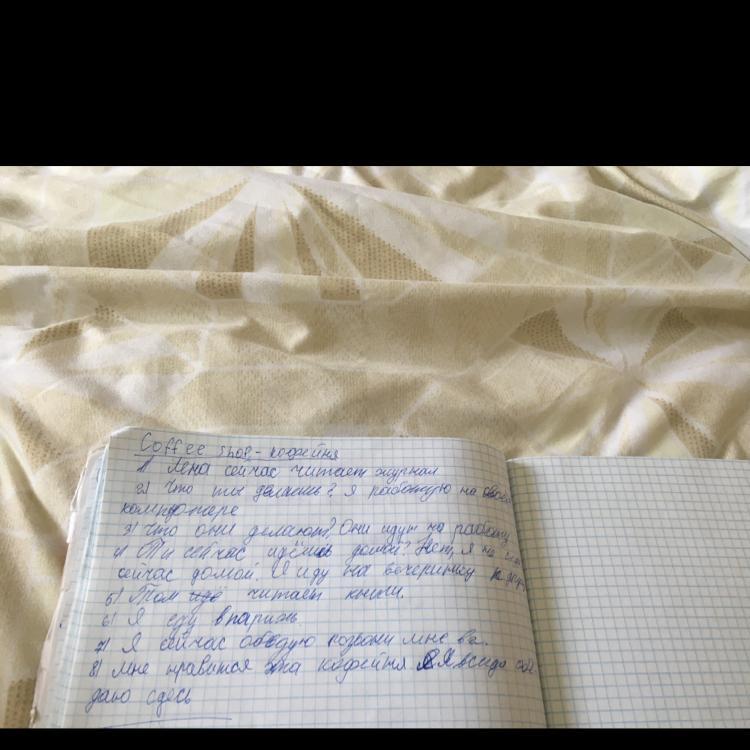 Coffee shop - кофейня
1) Лена сейчас читает журнал
2) Что ты делаешь? Я работую на своём
компютаре
3) Что они делают? Они идут на работу
4) Ты сейчас идёшь домой? Нет, я не иду
сейчас домой. Я иду на вечеринку к
5) Том читает книги.
6) Я еду в париж.
7) Я сейчас обедую позвони мне
8) Мне нравится эта кофейня Я всегда обе
даю сдесь